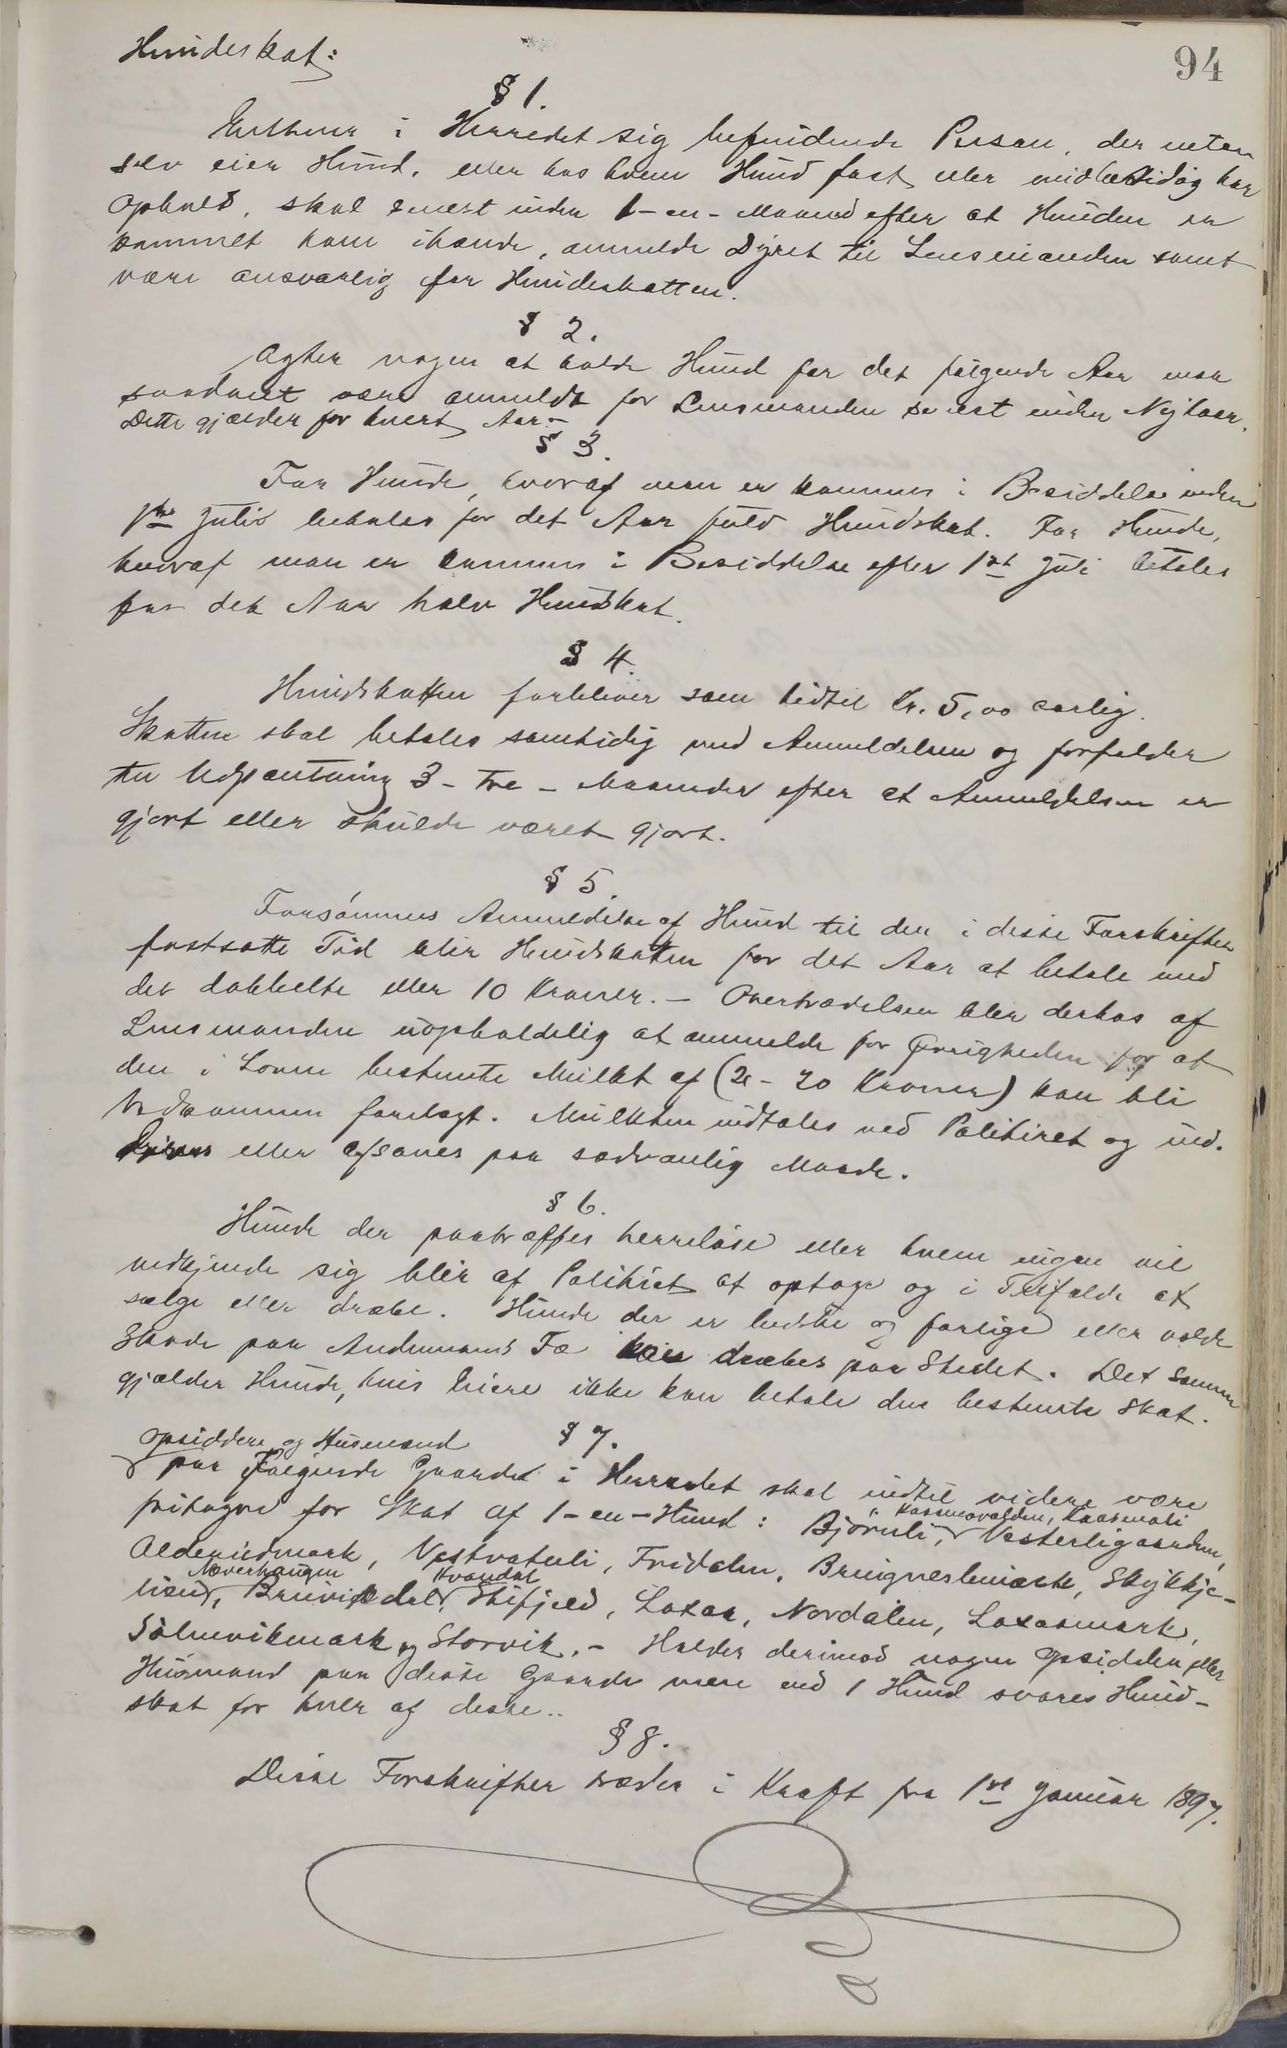 Hundeskat:
94
§ 1.
Enhver i Herredet sig befindende Person, der enten
selv eier Hund, eller hos hvem Hund fast eller midlertidig har
Ophold, skal senest inden 1-en-Maaned efter at Hunden er
kommet ham ihænde, anmelde Dyret til Lensmanden samt
være ansvarlig for Hundeskatten.
§ 2.
Agter nogen at holde Hund for det følgende Aar maa
saadant være anmeldt for Lensmanden senest inden Nytaar.
Dette gjælder for hvert Aar.-
§ 3.
For Hunde, hvoraf man er kommen i Besiddelse inden
1ste Juli betales for det Aar fuld Hundskat. For Hunde,
hvoraf man er kommen i Besiddelse efter 1st Juli betales
for det Aar halv Hundskat.
§ 4.
Hundskatten forbliver som hidtil Kr. 5,00 aarlig.
Skatten skal betales samtidig med Anmeldelsen og forfalder
til Udpantning 3 - tre - Maaneder efter at Anmeldelsen er
gjort eller skulde været gjort.
§ 5.
Forsømmes Anmeldelse af Hund til den i disse Forskrifter
fastsatte Tid blir Hundskatten for det Aar at betale med
det dobbelte eller 10 Kroner. - Overtrædelsen blir derhos af
Lensmanden uopholdelig at anmelde for Øvrigheden for at
den i Loven bestemte Mulkt af (2 - 20 Kroner) kan bli
Vedkommende forelagt. Mulkten indtales ved Politiret og ind-
drives eller afsones paa sædvanlig Maade.
§ 6.
Hunde der paatræffes herreløse eller hvem ingen vil
vedkjende sig blir af Politiet at optage og i Tilfælde at
sælge eller dræbe. Hunde der er bidske og farlige eller volde
Skade paa Andenmands Fæ kan dræbes paa Stedet. Det samme
gjælder Hunde, hvis Eiere ikke kan betale den bestemte Skat.
§ 7.
Opsiddere og Husmænd
paa Følgende Gaarde i Herredet skal indtil videre være
fritagne for Skat af 1-en-Hund: Bjørnli, Kasmovolden, Kaasmoli Vesterligaarden,
Aldernesmark, Vestvatnli, Fridalen, Bringneslimark, Skjkkje-
lien, Næverhaugen Brurskdal, Kvandal Stifjeld, Laxaa, Nordalen, Laxaamark,
Sølnevikmark og Storvik. - Holder derimod nogen Opsidder eller
Husmand paa disse Gaarde mere end 1 Hund svares Hund-
skat for hver af disse..
§ 8.
Disse Forskrifter træder i Kraft fra 1st Januar 1897.